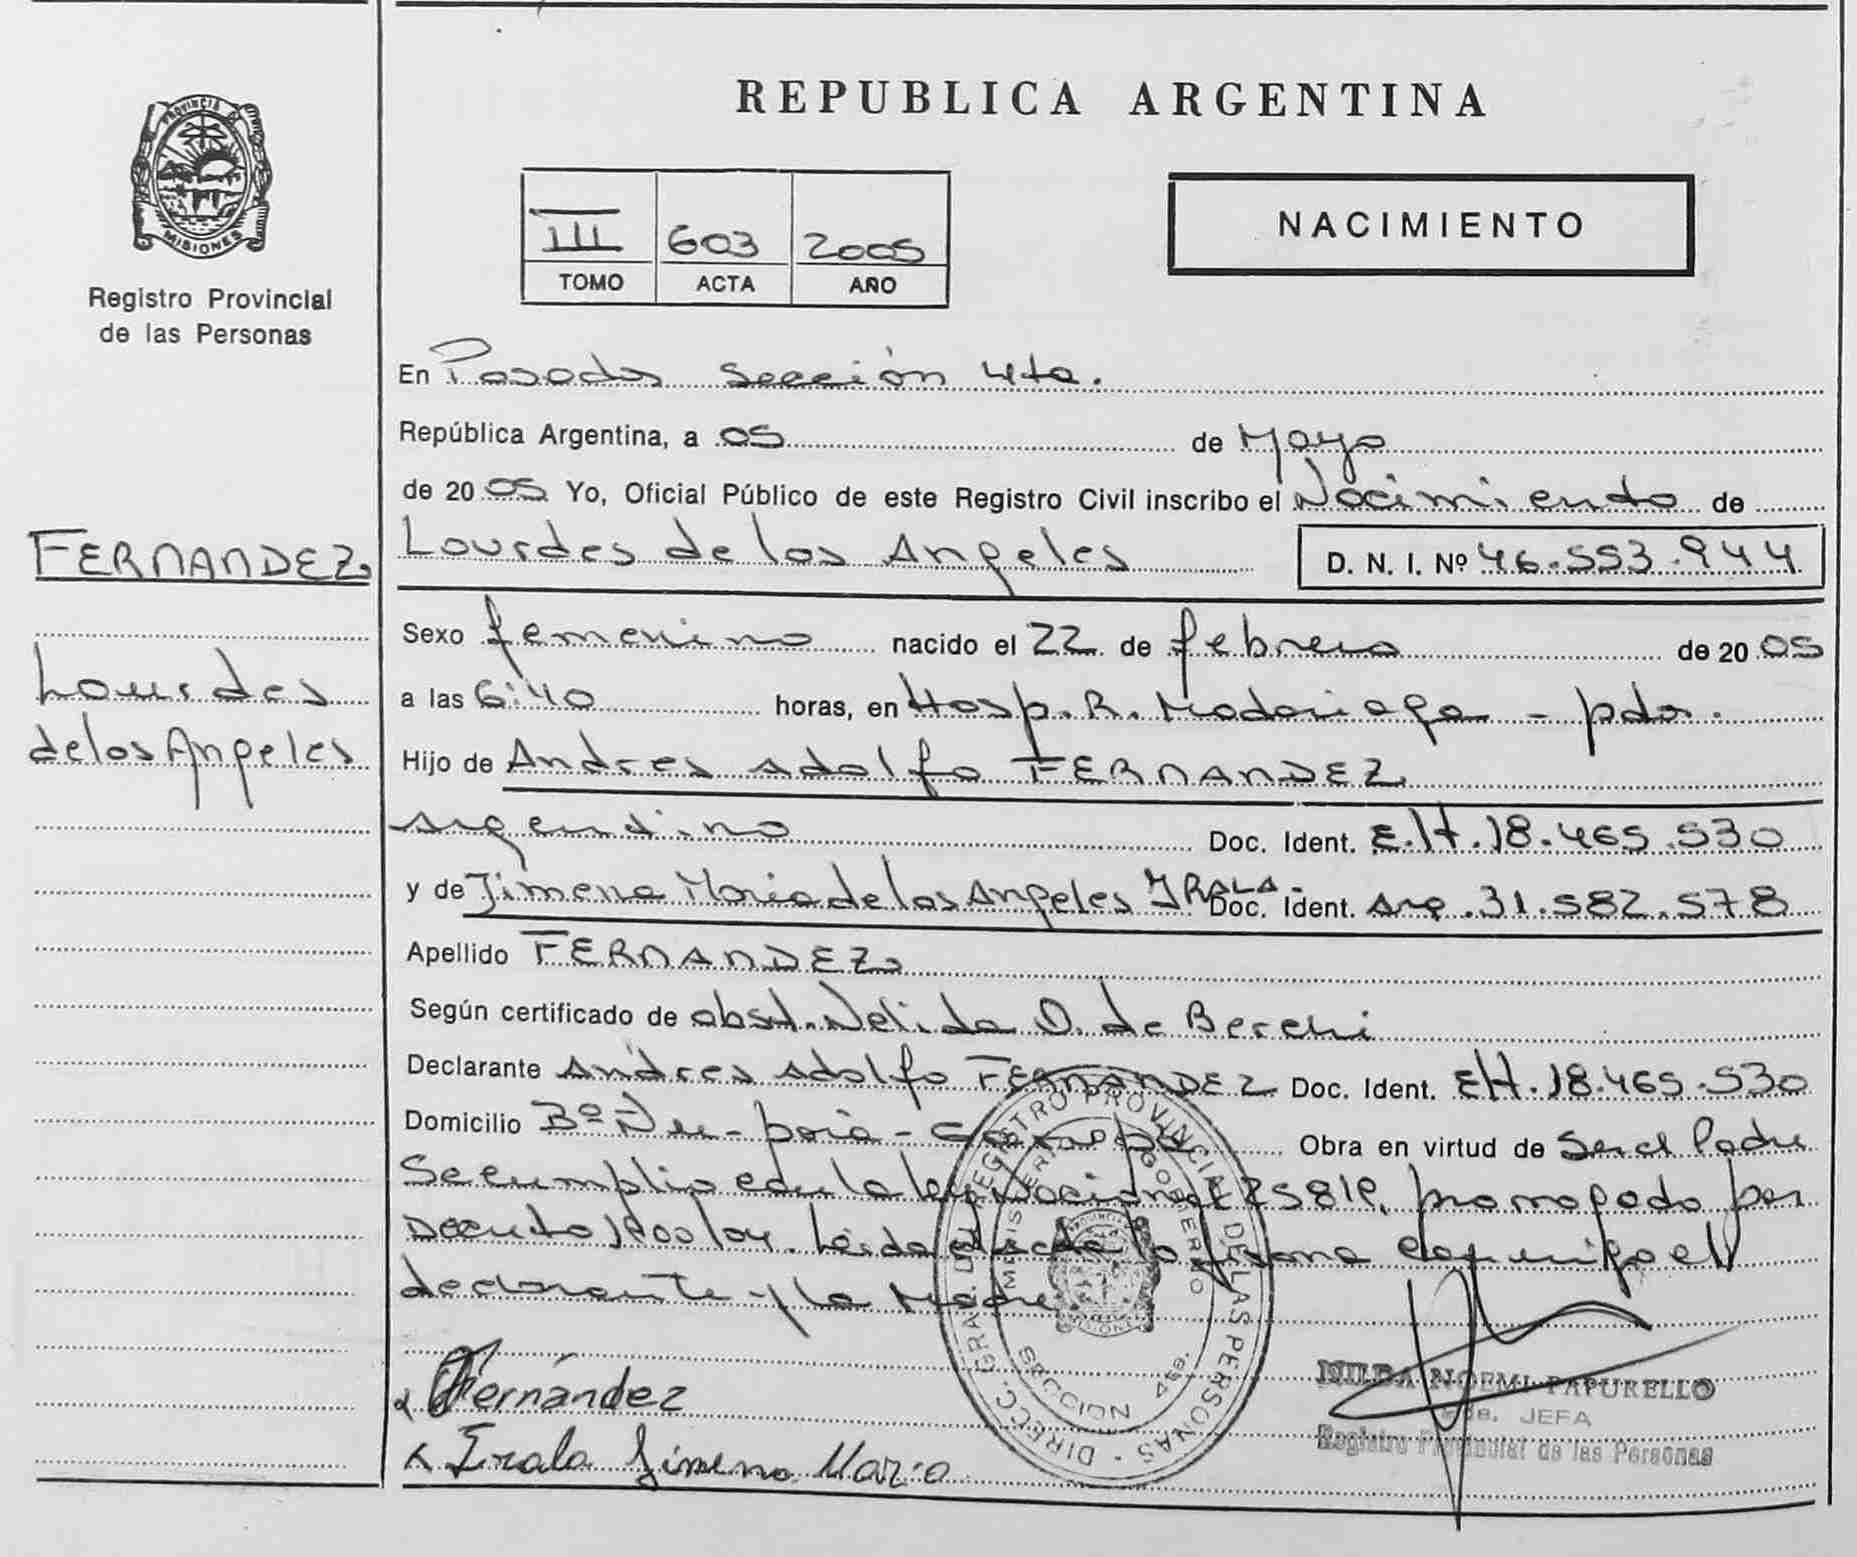 PROVINCIA DE
MISIONES
Registro Provincial
de las Personas
FERNANDEZ
Lourdes
de los Angeles
REPUBLICA ARGENTINA
III 603 2005
TOMO ACTA AÑO
NACIMIENTO
En Posadas Sección 4ta.
República Argentina, a 05 de Mayo
de 2005 Yo, Oficial Público de este Registro Civil inscribo el Nacimiento de
Lourdes de los Angeles D. N. I. Nº 46.553.944
Sexo femenino nacido el 22 de febrero de 2005
a las 6:40 horas, en Hosp. R. Madariaga - pdas.
Hijo de Andres Adolfo FERNANDEZ
argentino Doc. Ident. E.H. 18.465.530
y de Jimena Maria de los Angeles IRALA - Doc. Ident. Arg. 31.582.578
Apellido FERNANDEZ
Según certificado de obst. Nelida O. de
Declarante Andres Adolfo FERNANDEZ Doc. Ident. EH. 18.465.530
Domicilio Bº Ñu - porá - Obra en virtud de Ser el Padre
Se cumplio con la ley Nacional 25819, promogado por
Decreto 1900/04. Leida el acta la firma conmigo el
declarante y la Madre
Fernández
Irala Jimena Maria
DIRECC. GRAL. DEL REGISTRO PROVINCIAL DE LAS PERSONAS
MINISTERIO GOBIERNO
SECCION 4ta.
NILDA NOEMI PAPURELLO
JEFA
Registro Provincial de las Personas